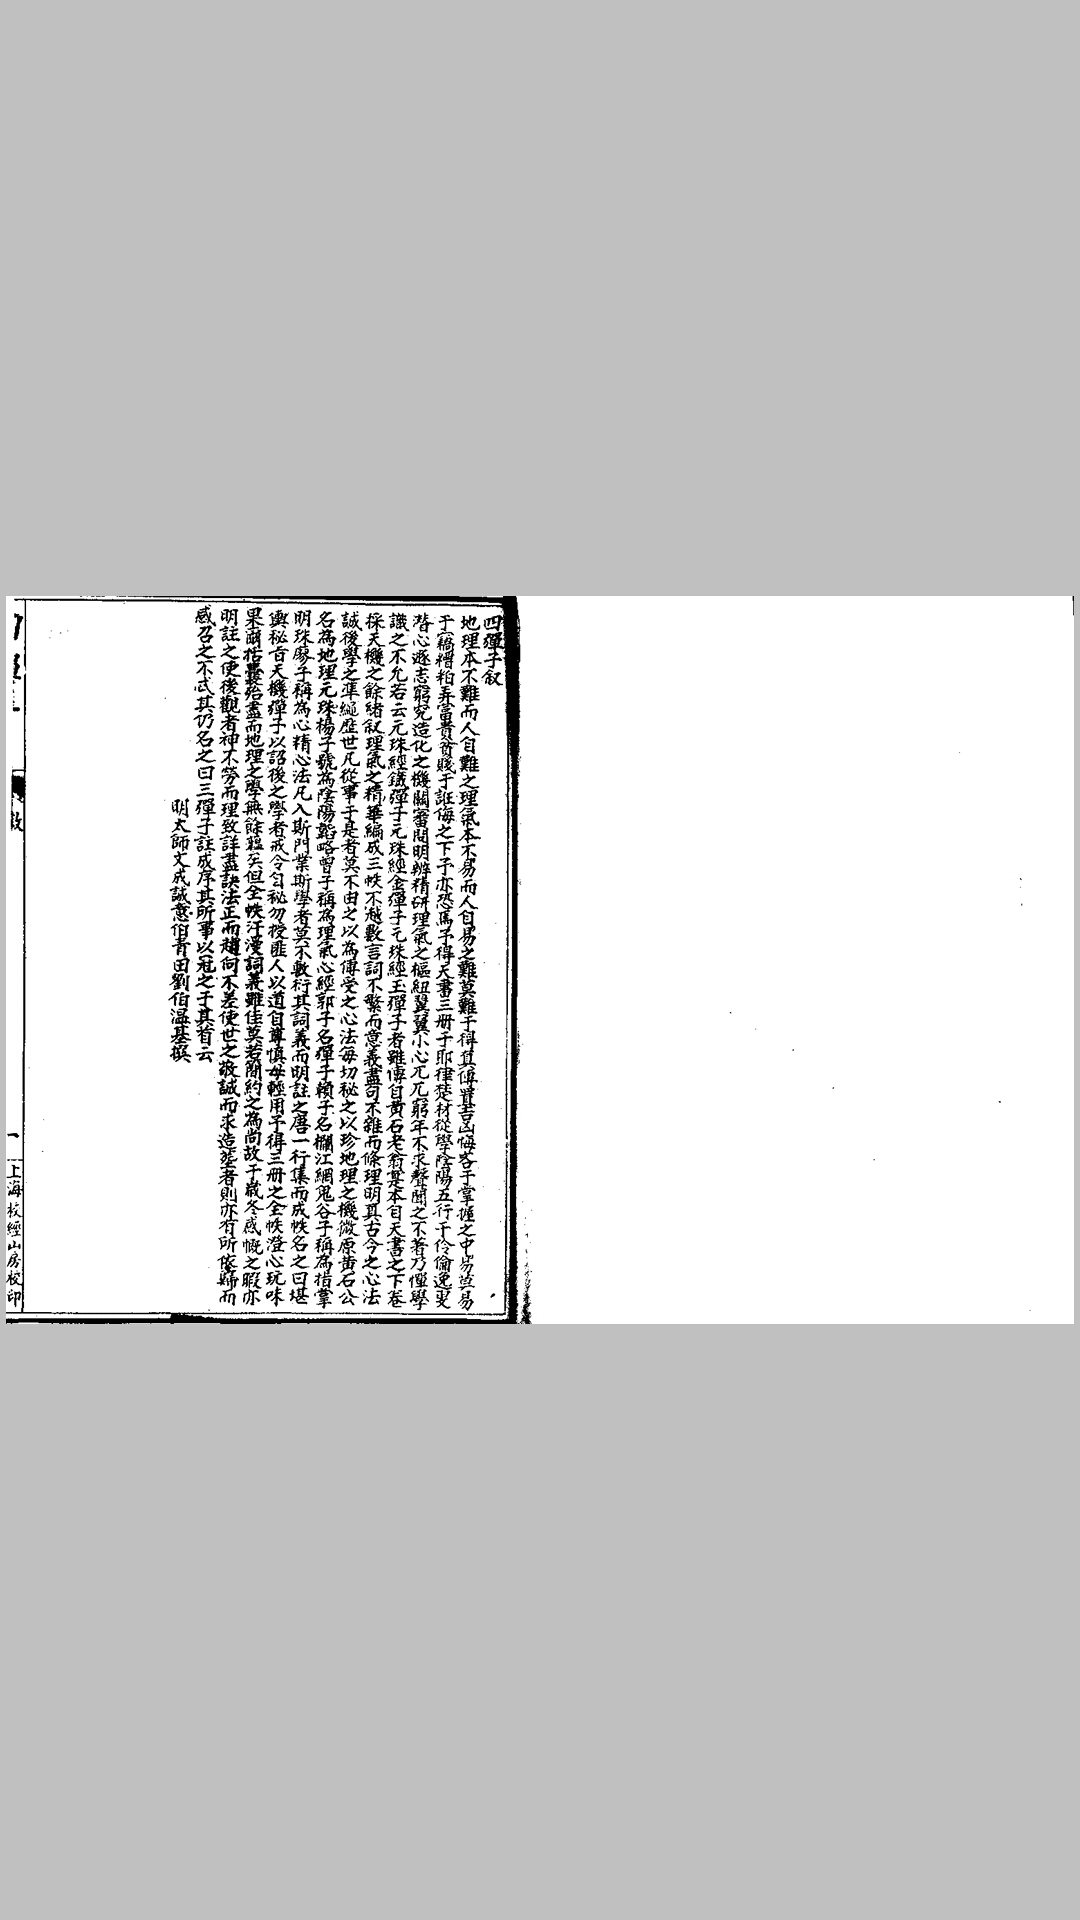 四彈子叙
地理本不難而人自難之理氣本不易而人自易之難莫難于得其傳置吉凶悔吝于掌握之中易莫易
于竊糟粕弄富貴貧賤于誑侮之下予亦恐焉予得天書三册于耶律楚材從學陰陽五行于伶倫逸叟
潛心遜志窮究造化之機關審問明辨精研理氣之樞紐翼翼小心兀兀窮年不求聲聞之不著乃憚學
識之不允若云元珠經鐵彈子元珠經金彈子元珠經玉彈子者雖傳自黃石老翁寔本自天書之下卷
採天機之餘緒叙理氣之精華編成三帙不越數言詞不繁而意義盡句不雜而條理明真古今之心法
誠後學之準繩歷世凡從事于是者莫不由之以為傳受之心法每切秘之以珍地理之機微原黃石公
名為地理元珠楊子號為陰陽韜略曾子稱為理氣心經郭子名彈子賴子名欄江網鬼谷子稱為指掌
明珠廖子稱為心精心法凡入斯門業斯學者莫不敷衍其詞義而明註之唐一行集而成帙名之曰堪
輿秘旨天機彈子以詔後之學者戒令勻秘勿授匪人以道自尊慎毋輕用予得三册之全帙澄心玩味
果爾括囊殆盡而地理之學無餘蘊矣但全帙汗漫詞義雖佳莫若簡約之為尚故于嵗冬感慨之暇亦
明註之使後觀者神不勞而理致詳盡訣法正而趨向不差使世之敬誠而求造塋者則亦有所依歸而
感召之不忒其仍名之曰三彈子註成序其所事以冠之于其首云
明太師文成誠意伯青田劉伯溫基撰
叙
一
上海校經山房校印